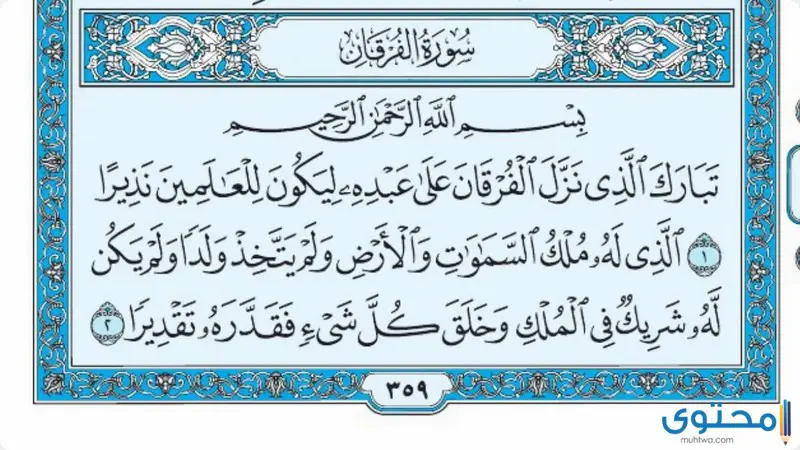 سُورَةُ الفُرْقَانِ
بِسْمِ ٱللَّهِ ٱلرَّحْمَٰنِ ٱلرَّحِيمِ
تَبَارَكَ ٱلَّذِى نَزَّلَ ٱلْفُرْقَانَ عَلَىٰ عَبْدِهِۦ لِيَكُونَ لِلْعَٰلَمِينَ نَذِيرًا
١ ٱلَّذِى لَهُۥ مُلْكُ ٱلسَّمَٰوَٰتِ وَٱلْأَرْضِ وَلَمْ يَتَّخِذْ وَلَدًا وَلَمْ يَكُن
لَّهُۥ شَرِيكٌ فِى ٱلْمُلْكِ وَخَلَقَ كُلَّ شَىْءٍ فَقَدَّرَهُۥ تَقْدِيرًا ٢
٣٥٩
محتوى
muhtwa.com